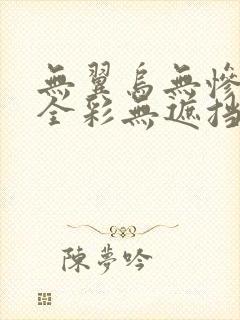 無翼鳥無慘
全彩無遮挡
陳夢吟